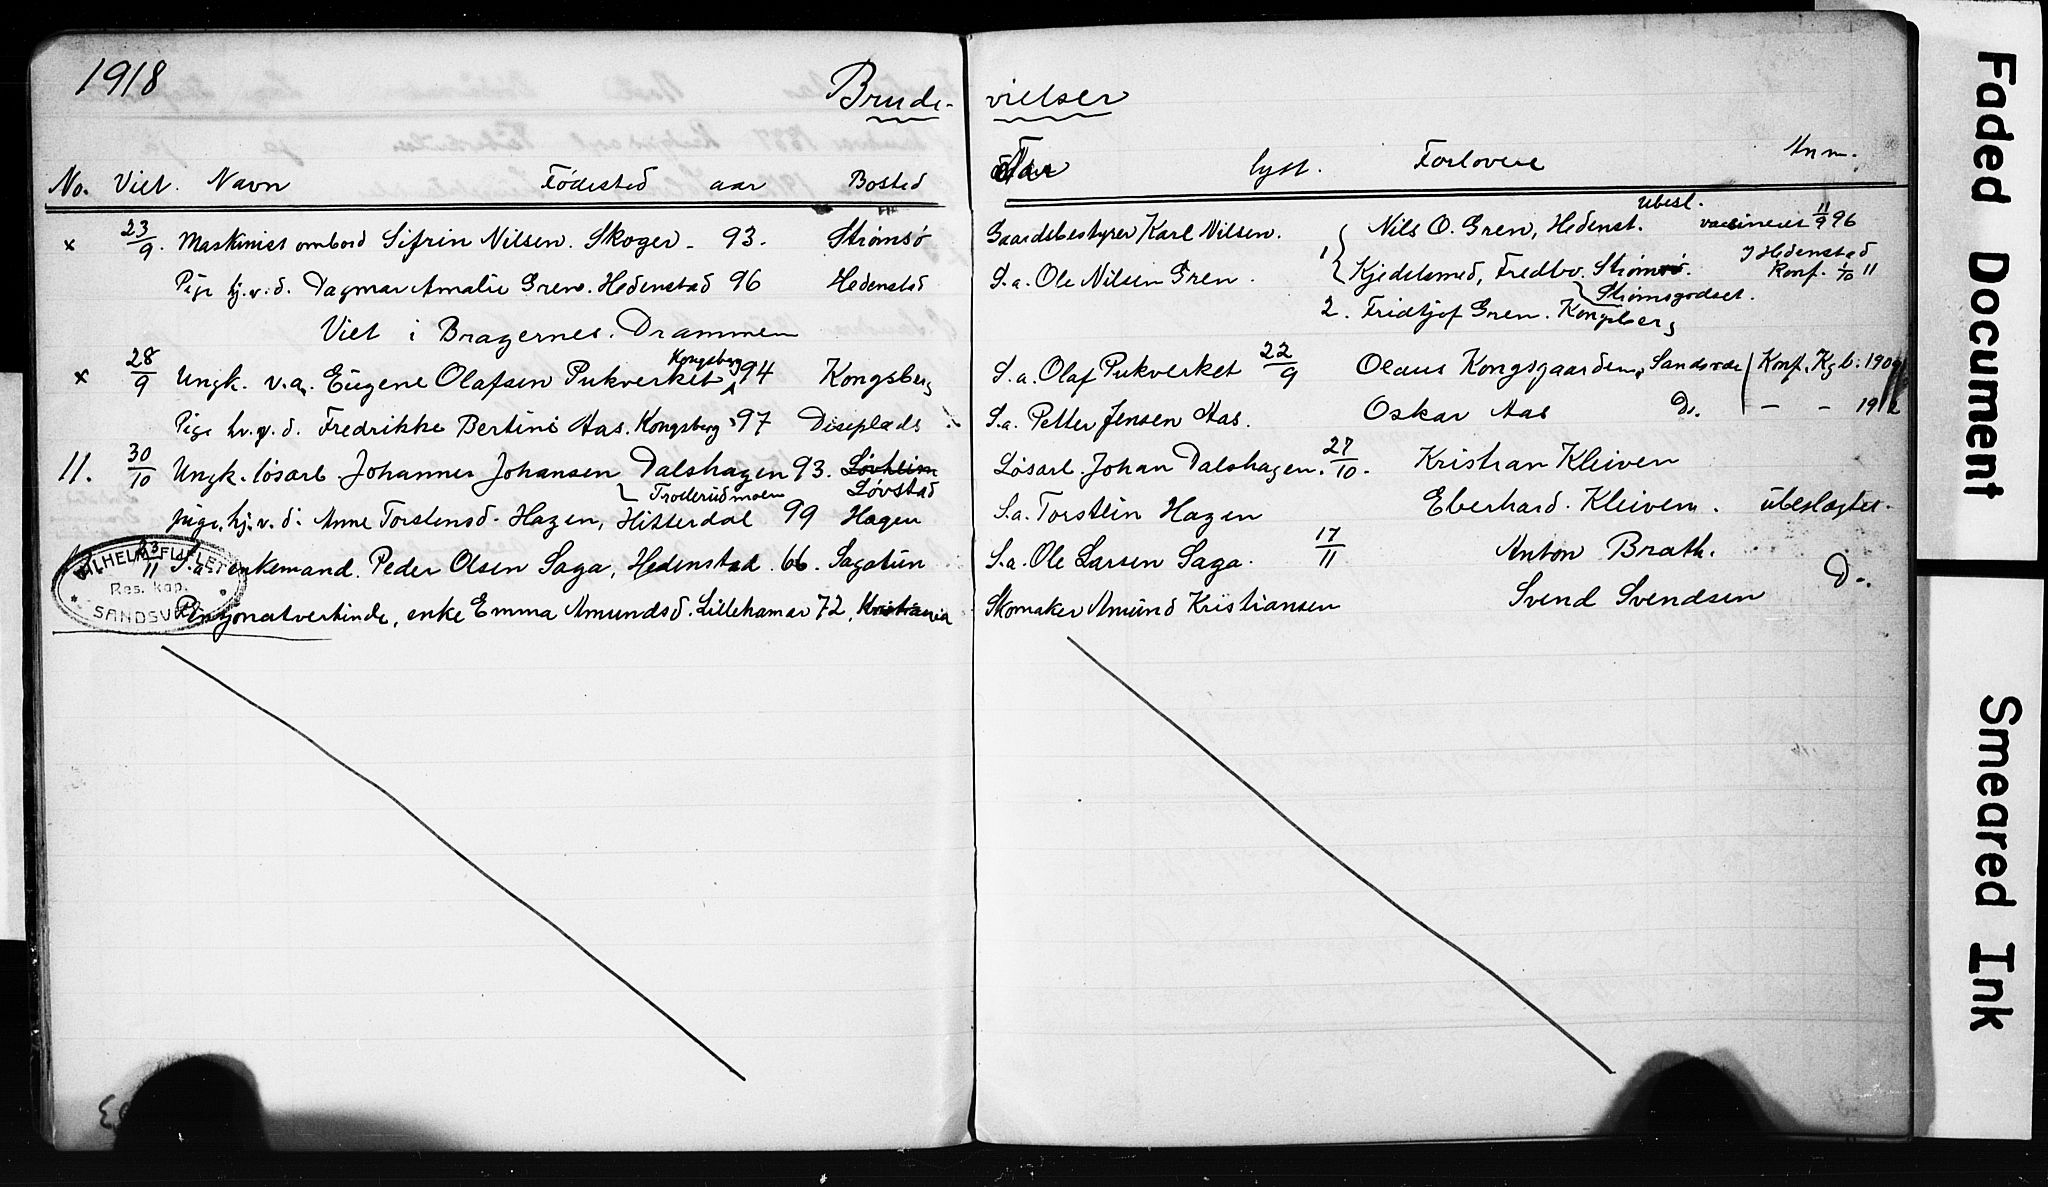 1918
Brude- vielser
No. Viet. Navn Födested aar Bosted Far lyst. Forlovere Anm.
x 23/9. Maskinist ombord Sifrin Nilsen. Skoger - 93. Strömsö Gaardsbestyrer Karl Nilsen. 1 { Nils O. Gren, Hedenst. Ubesl. vaccineret 11/9 96
Pige hj.v.d. Dagmar Amalie Gren. Hedenstad 96 Hedenstad S.a. Ole Nilsen Gren. Kjedelsmed, Fredbo. Strömsö. Strömsgodset. I Hedenstad Konf. 1/10 11
Viet i Bragernes. Drammen 2. Fridtjof Gren. Kongsberg
x 28/9 Ungk. v.a. Eugene Olafsen Pukverket Kongsberg 94 Kongsberg S.a. Olaf Pukverket 22/9 Olaus Kongsgaarden, Sandsv. (Konf. Kgb. 190
Pige hv.v.d. Fredrikke Bertine Aas. Kongsberg 97 Diseplads S.a. Petter Jensen Aas. Oskar Aas Do. - - 1912
11. 30/10 Ungk. lösarb. Johannes Johansen Dalshagen 93. Lövheim Lövstad Lösarb. Johan Dalshagen. 27/10. Kristian Kleiven
pige, hj.v.d. Anne Torstensd. Hagen, Troderudmoen Hitterdal 99 Hagen S.a. Torstein Hagen Eberhard Kleiven. ubeslægtet.
23/11 S.a. enkemand. Peder Olsen Saga, Hedenstad. 66. Sagatun S.a. Ole Larsen Saga. 17/11 Anton Brath. Do.
Pensjonatvertinde, enke Emma Amundsd. Lillehamar 72, Kristiania Skomaker Amund Kristiansen Svend Svendsen
WILHELM FLIFLET
Res. kap.
SANDSVÆR
Faded Document
Smeared Ink